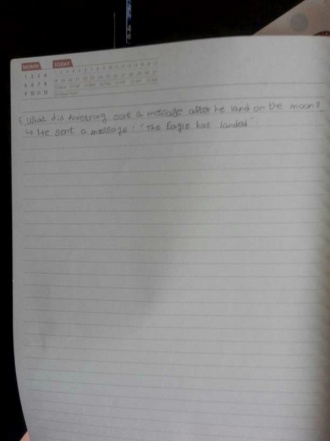 MONTH TODAY
1 2 3 4
5 6 7 8
9 10 11 12
What did Amstrong sent a message after he land on the moon?
↳ He sent a message : "The Eagle has landed"